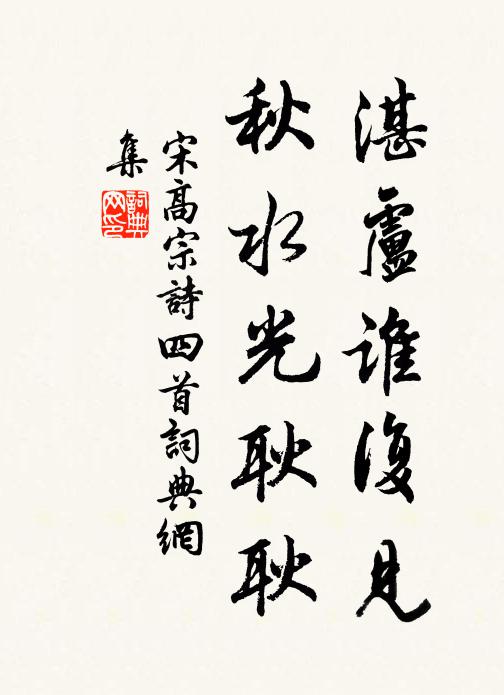 湛盧誰復見
秋水光耿耿
宋高宗詩四首詞典網
集
詞典網印